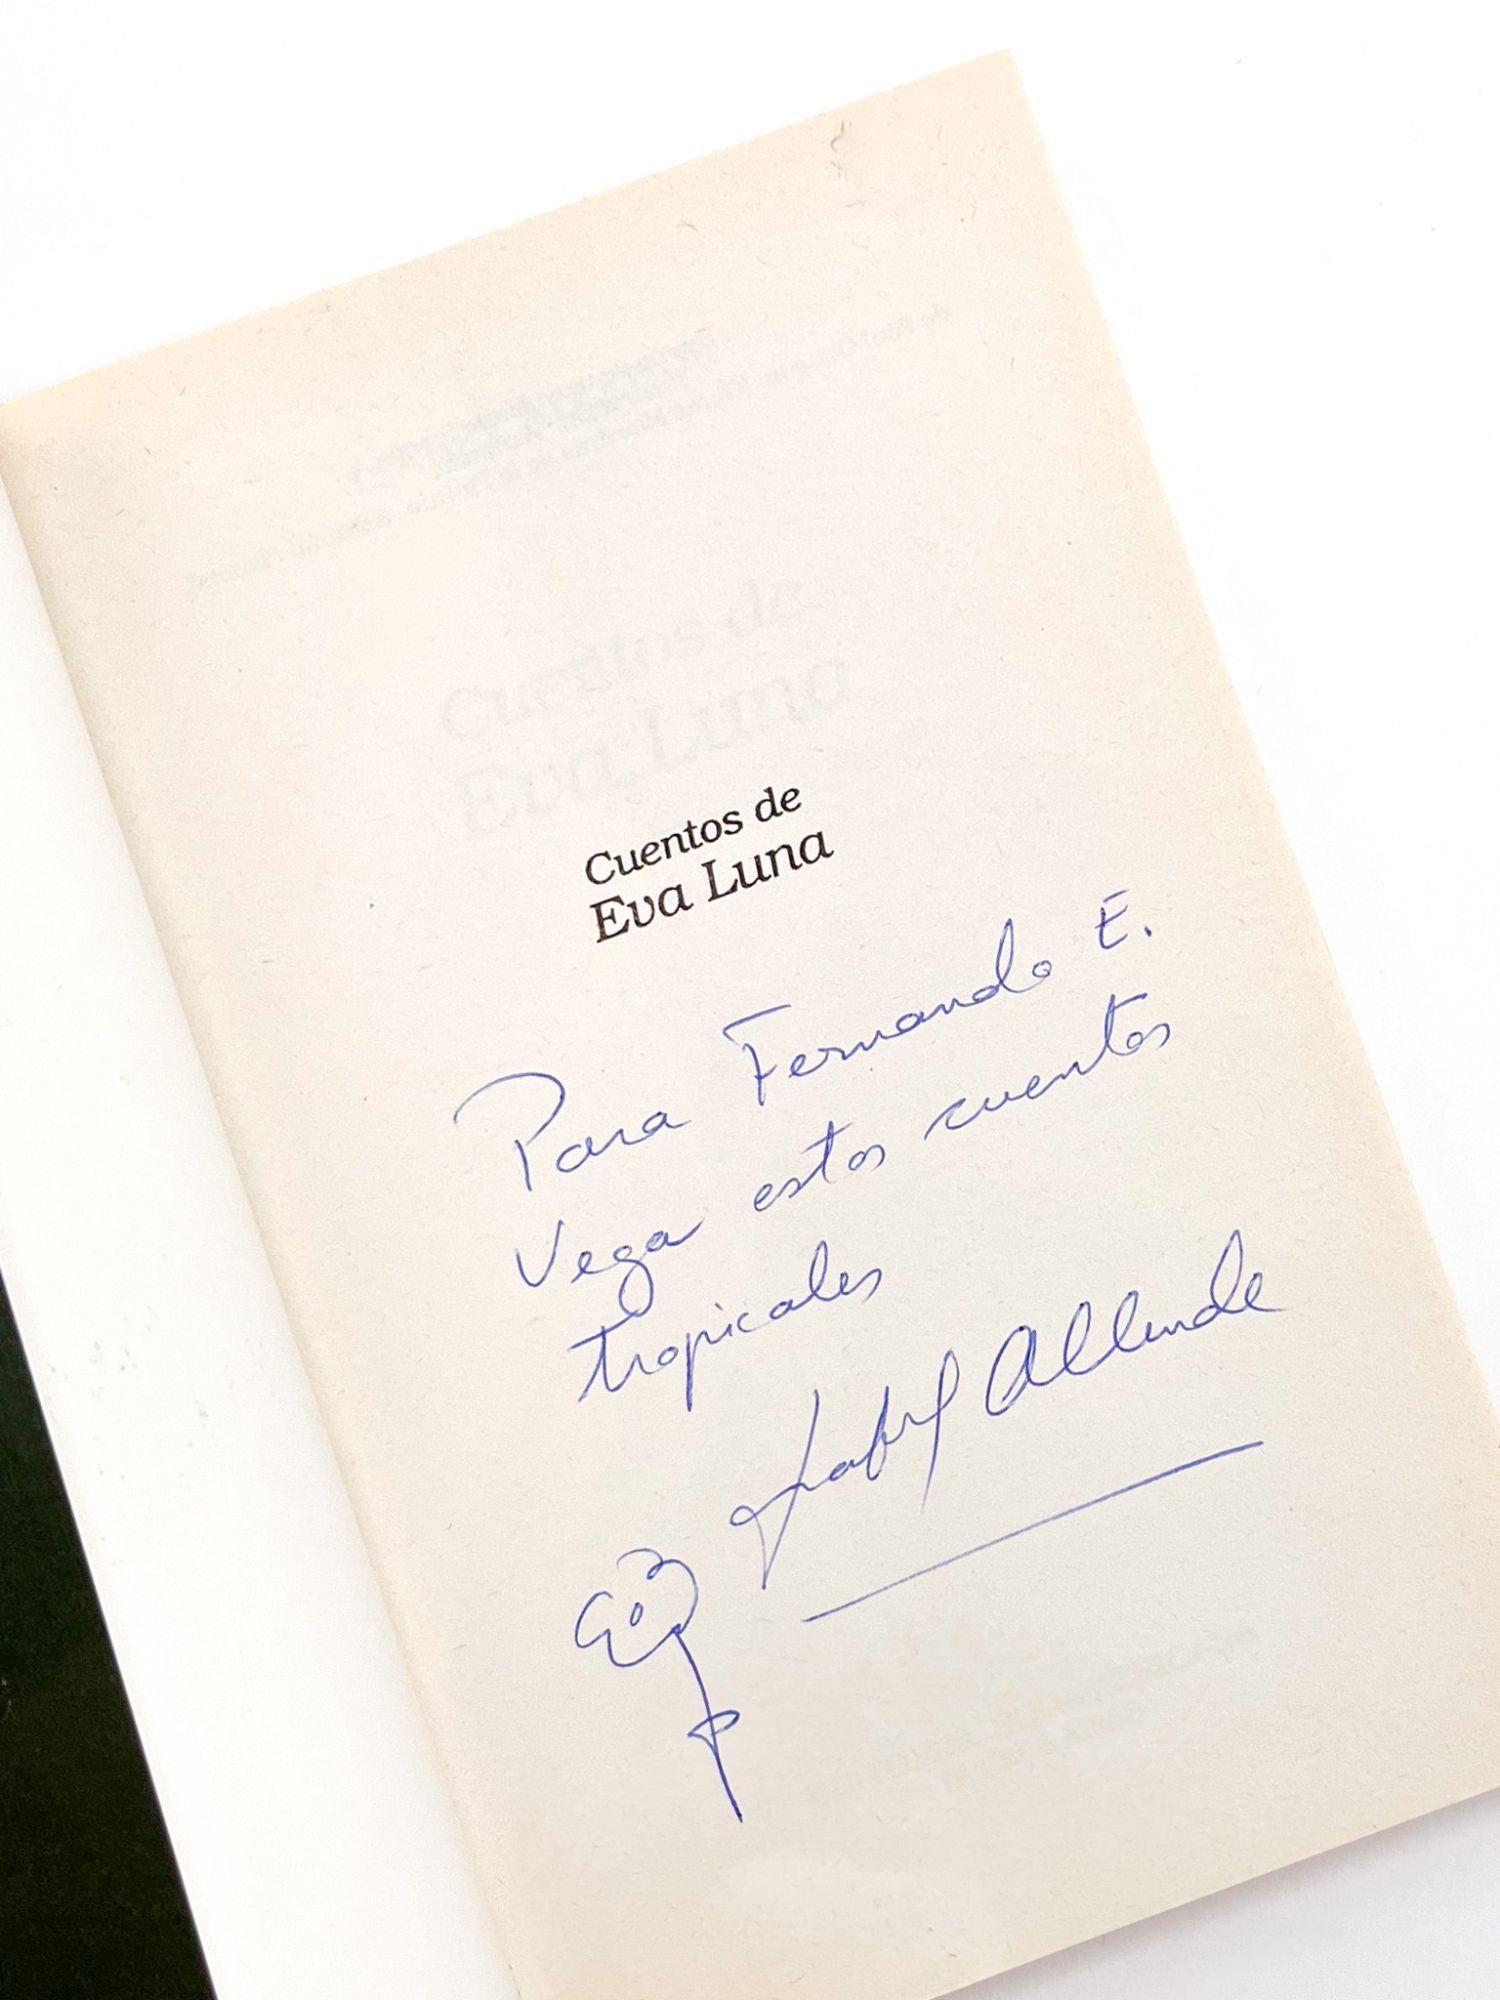 Cuentos de
Eva Luna
Para Fernando E.
Vega estos cuentos
tropicales
Isabel Allende